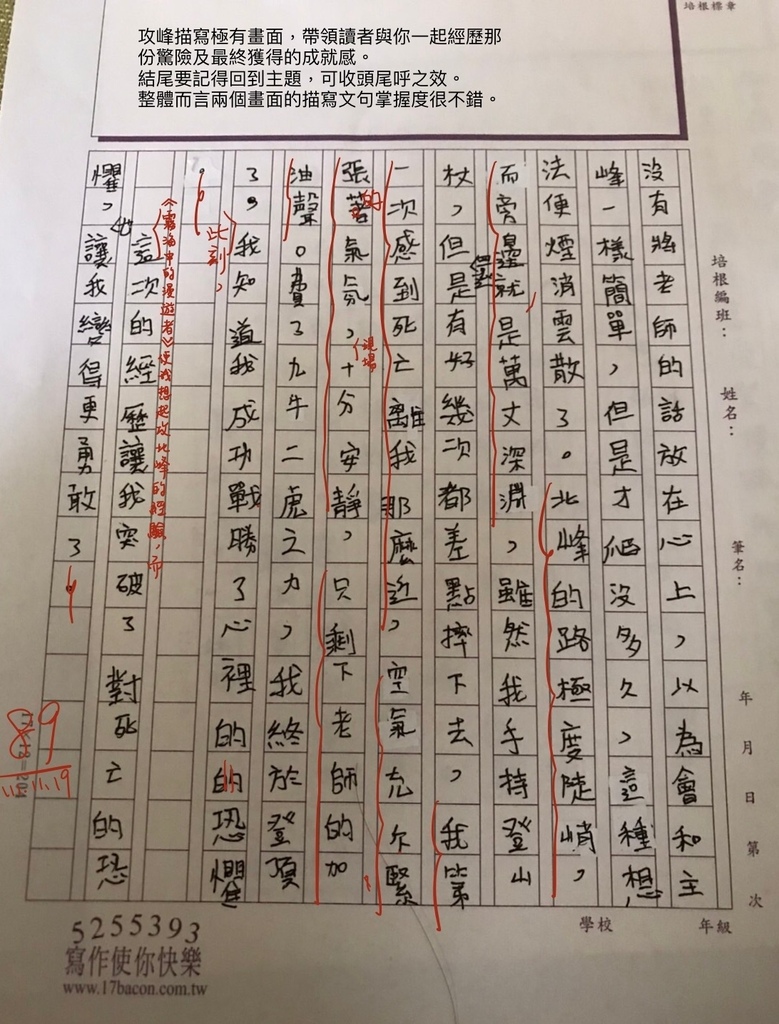 培根標章
攻峰描寫極有畫面，帶領讀者與你一起經歷那
份驚險及最終獲得的成就感。
結尾要記得回到主題，可收頭尾呼之效。
整體而言兩個畫面的描寫文句掌握度很不錯。
培根編班：
姓名：
筆名：
年 月 日 第 次
學校 年級
沒有將老師的話放在心上，以為會和主
峰一樣簡單，但是才爬沒多久，這種想
法便煙消雲散了。北峰的路極度陡峭，
而旁邊就是萬丈深淵，雖然我手持登山
杖，但是有好幾次都差點摔下去，我第
一次感到死亡離我那麼近，空氣充斥緊
張著氣氛，十分安靜，只剩下老師的加
的
現場
油聲。費了九牛二虎之力，我終於登頂
了。我知道我成功戰勝了心裡的的恐懼
此刻，
。
《霧海中的漫遊者》使我想起攻北峰的經驗，而
這次的經歷讓我突破了對死亡的恐
懼，讓我變得更勇敢了。
也
89
11.19
5255393
寫作使你快樂
www.17bacon.com.tw